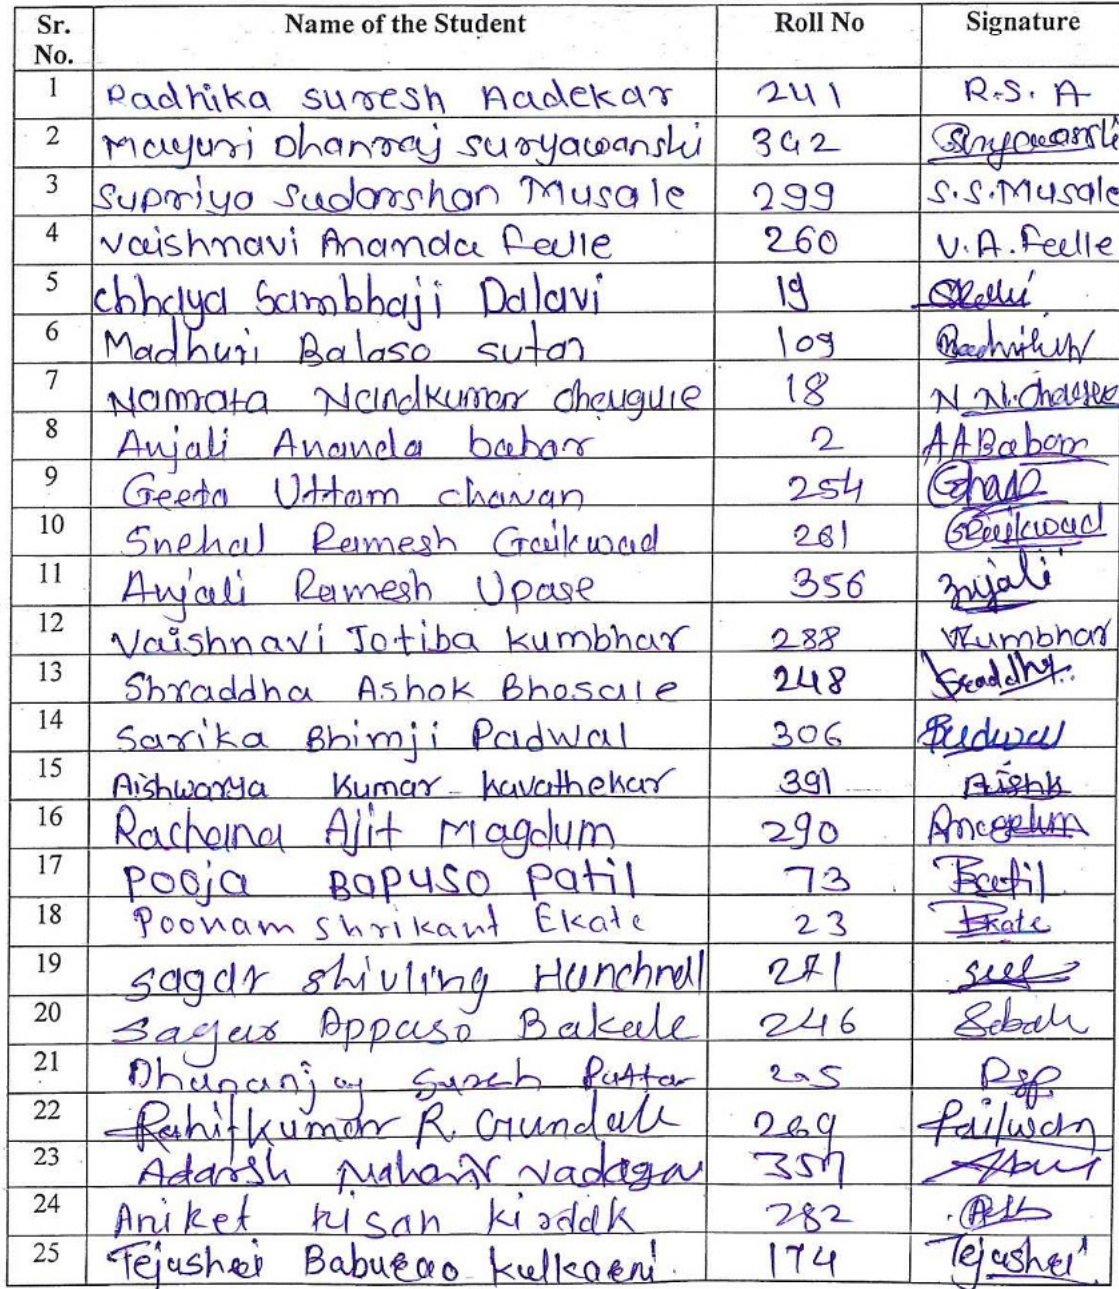 Sr. No. Name of the Student Roll No Signature
1 Radhika suresh Aadekar 241 R.S. A
2 Mayuri Dhanraj suryawanshi 342 Suryawanshi
3 Supriya Sudarshan Musale 299 S.S.Musale
4 Vaishnavi Ananda Felle 260 V.A.Felle
5 Chhaya Sambhaji Dalavi 19
6 Madhuri Balaso sutar 109
7 Namrata Nandkumar chougule 18 N N.
8 Anjali Ananda babar 2 AABabar
9 Geeta Uttam chavan 254
10 Snehal Ramesh Gaikwad 261 Gaikwad
11 Anjali Ramesh Upase 356 Anjali
12 Vaishnavi Jotiba kumbhar 288 VKumbhar
13 Shraddha Ashok Bhosale 248
14 Sarika Bhimji Padwal 306 Padwal
15 Aishwarya Kumar kavathekar 391
16 Rachana Ajit Magdum 290
17 Pooja Bapuso Patil 73 Patil
18 Poonam shrikant Ekate 23 Ekate
19 sagar shivling Hunchnal 271
20 Sagar Appaso Bakale 246
21 Dhananjay Suresh Pattar
22 R. 269
23 Adarsh Mahavir
24 Aniket kisan 282
25 Tejashri Baburao kulkarni 174 Tejashri